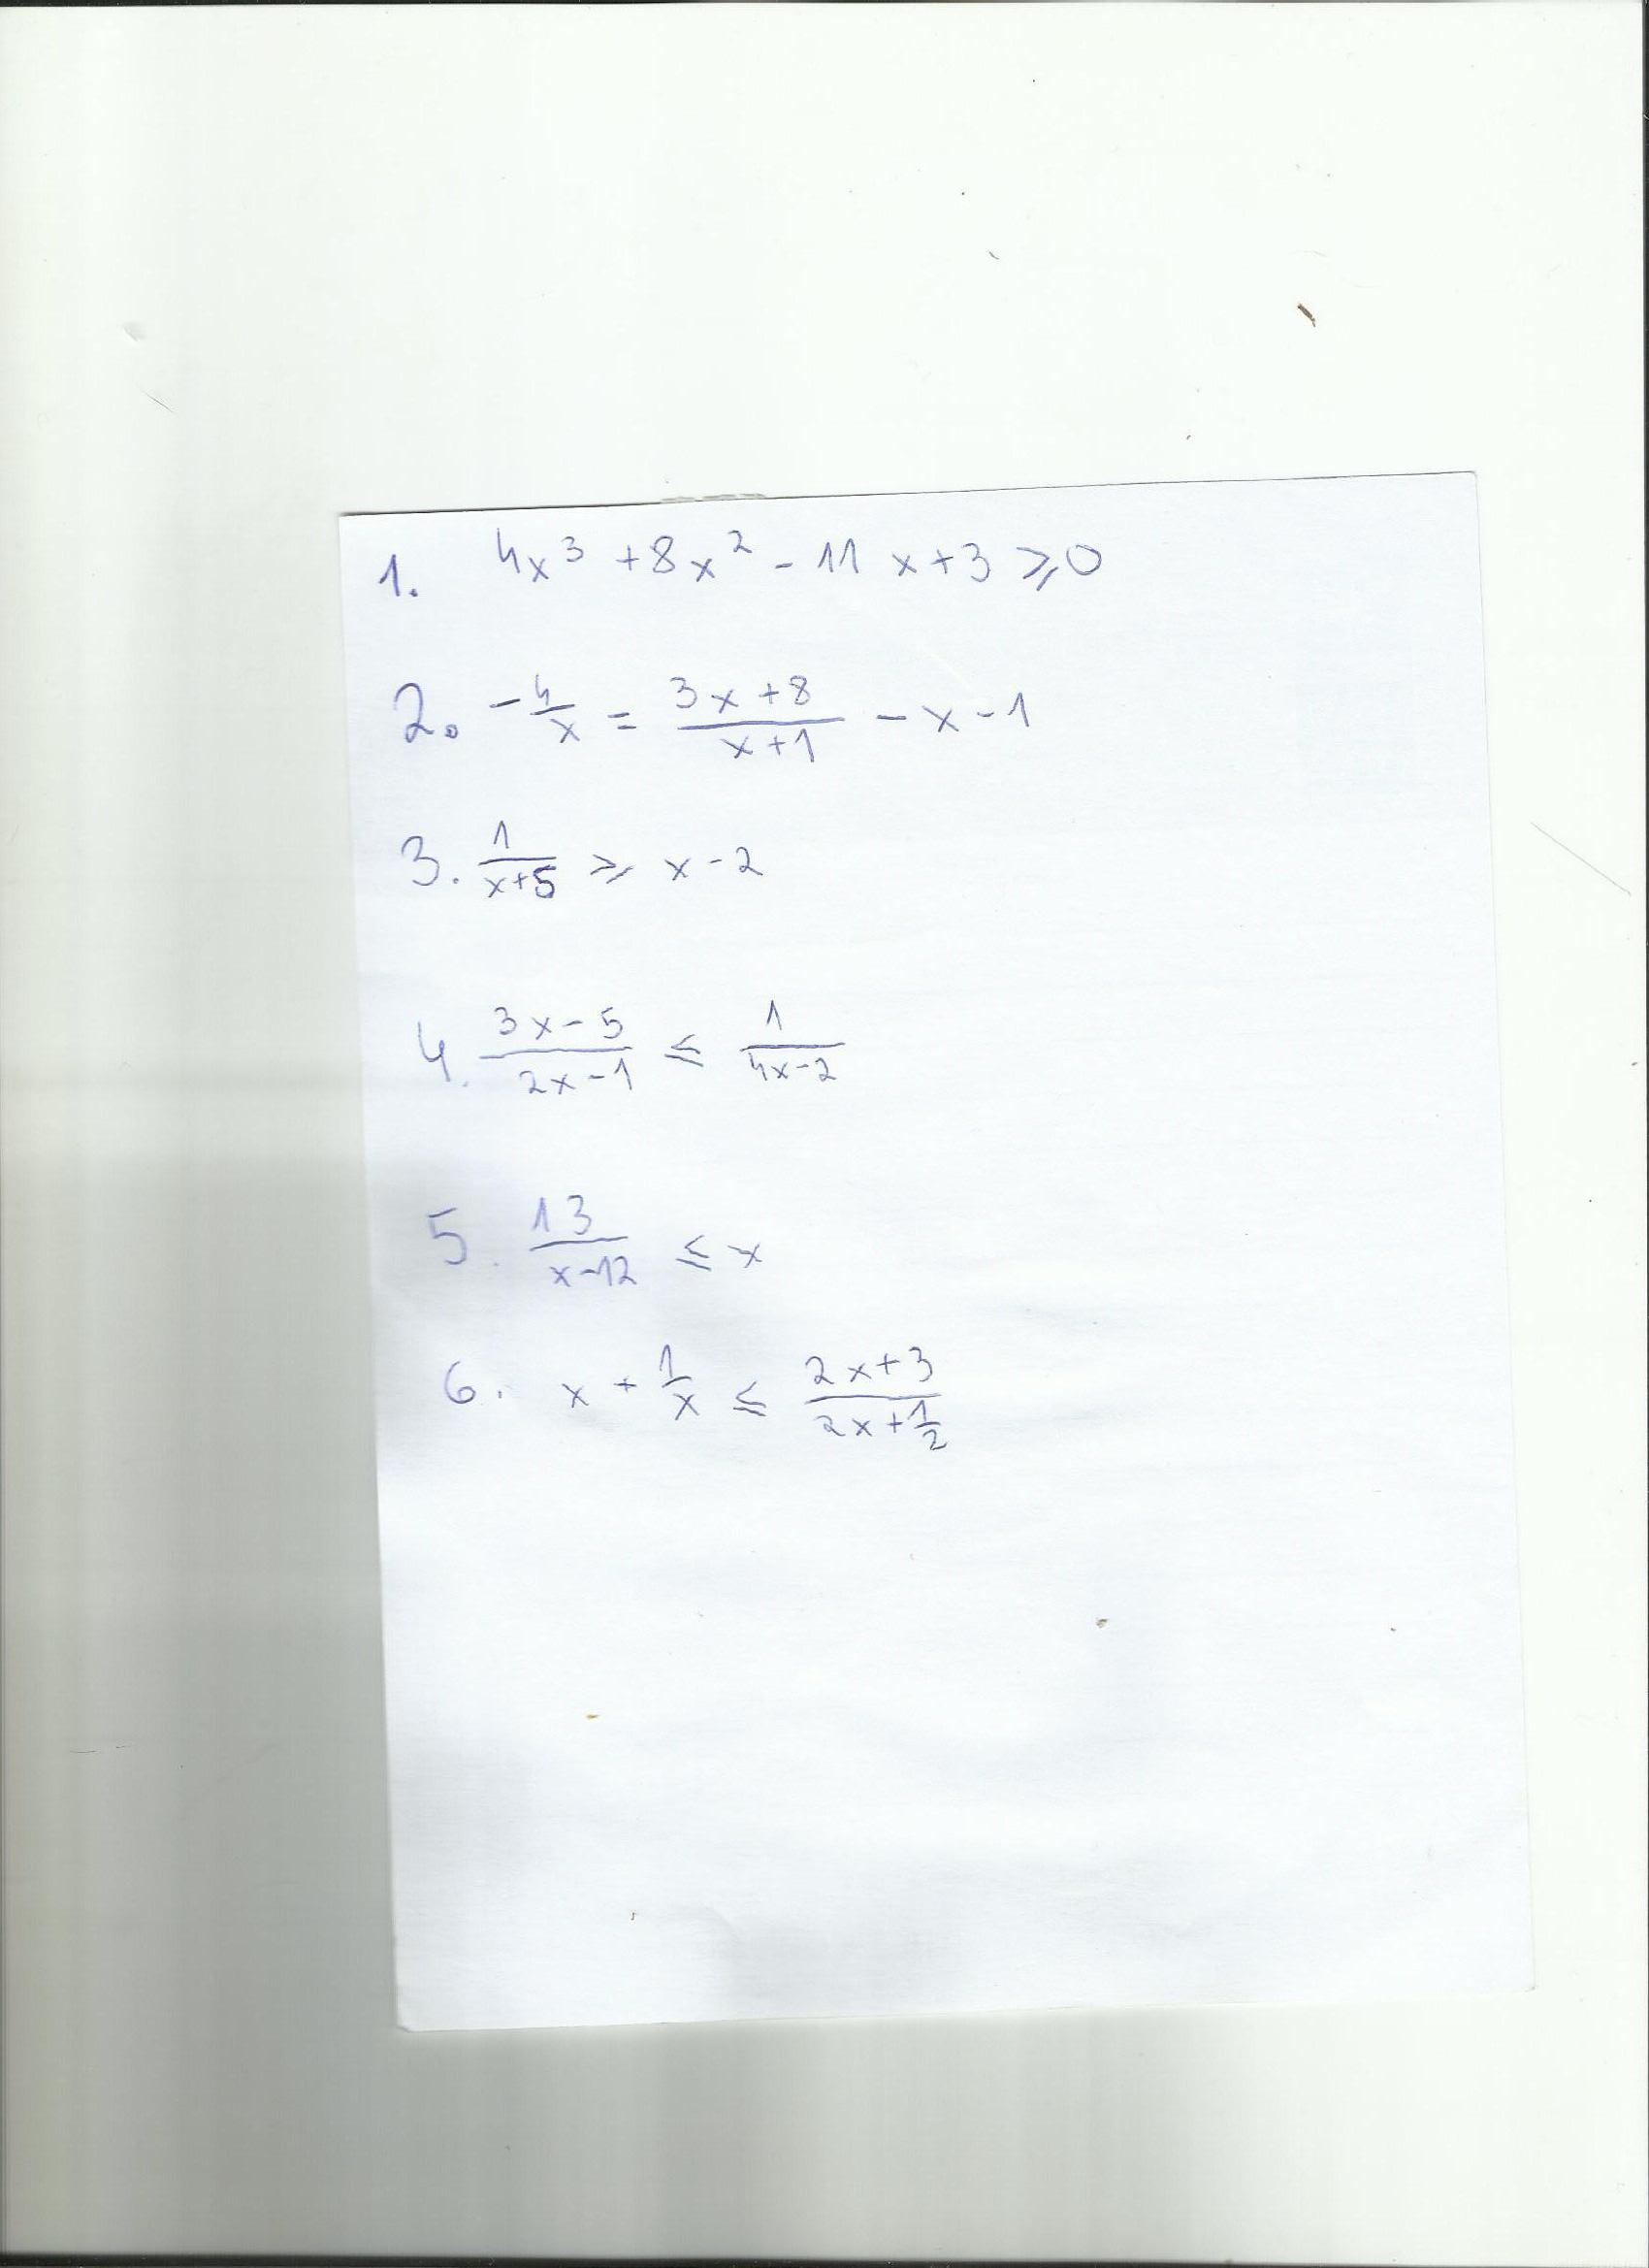 1. 4x³ + 8x² - 11x + 3 ⩾ 0
2. -4/x = (3x+8)/(x+1) - x - 1
3. 1/(x+5) ⩾ x - 2
4. (3x-5)/(2x-1) ≤ 1/(4x-2)
5. 13/(x-12) ≤ x
6. x + 1/x ≤ (2x+3)/(2x+1/2)